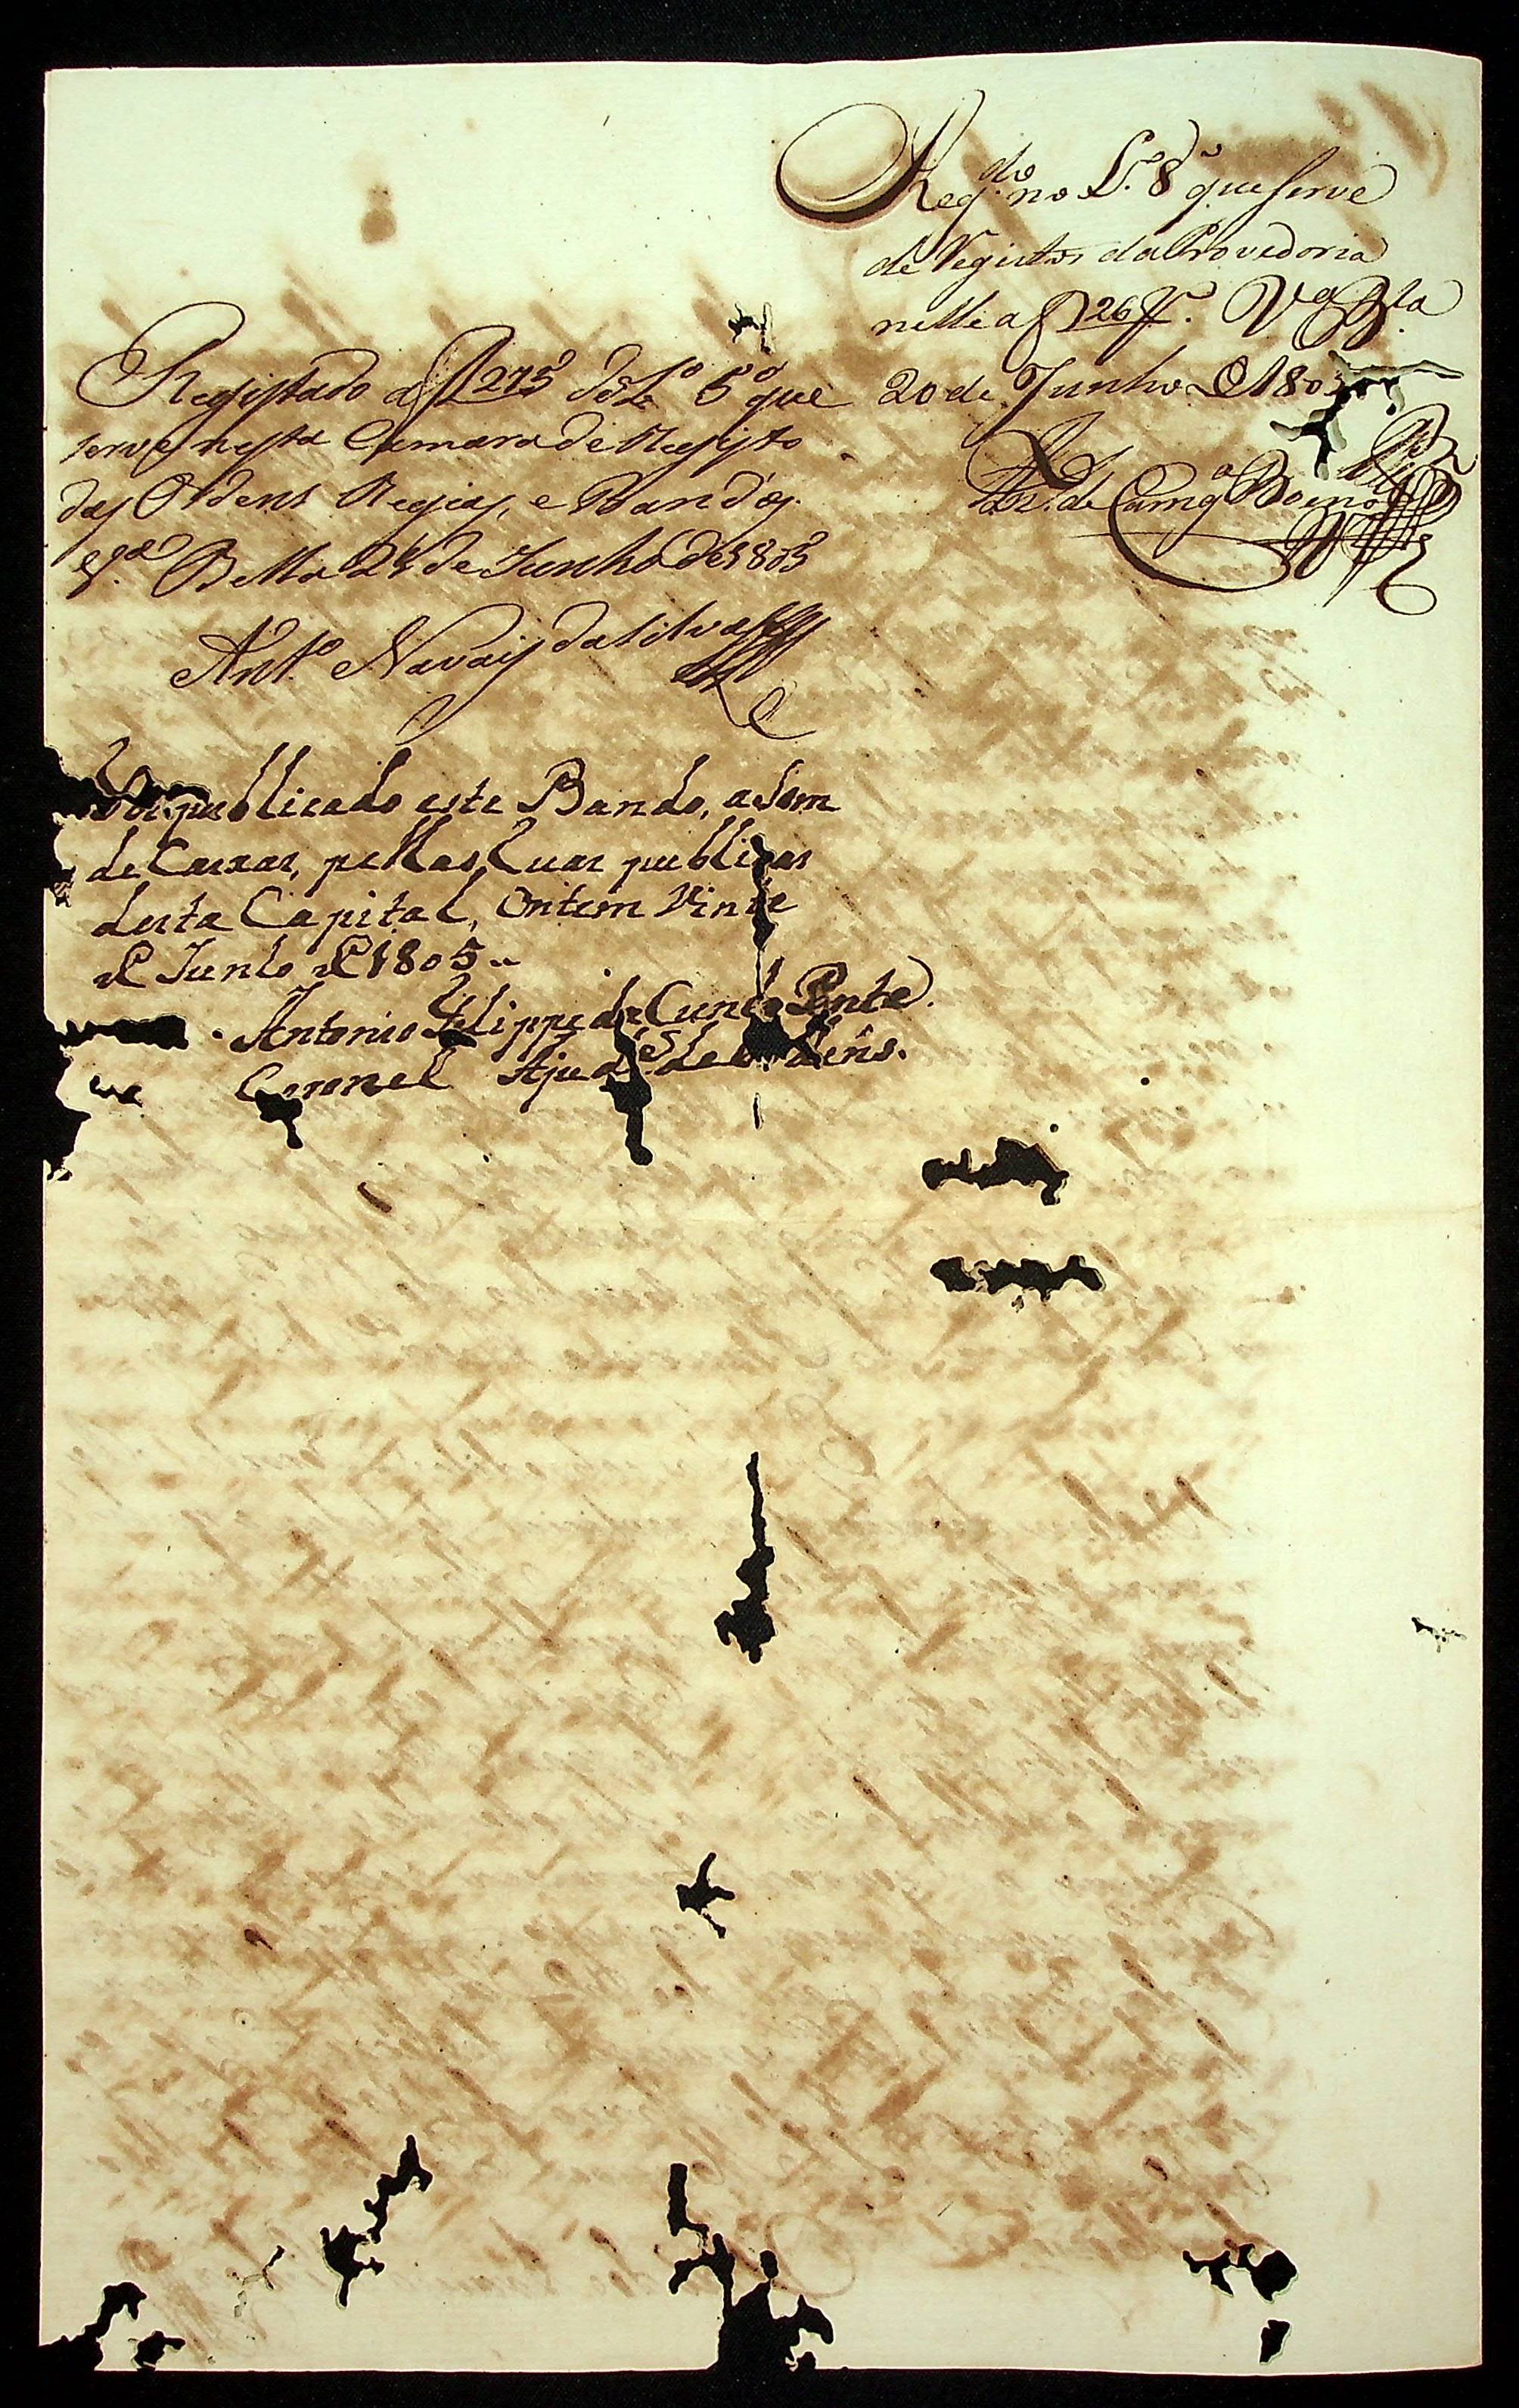 Reg.do no L.º 8º que serve
de Registos da Provedoria
nelle a f 26 V.ª B.la
20 de Junho de 180
de Camg.º Bueno
Registado a f 275 do L.º 5º que
serve nesta Camara de Registo
das Ordens Regias, e Bandos.
V.ª Bella 21 de Junho de 1805
Ant.º Navais da Silva
Foi publicado este Bando, a som
de Caixas, pellas Ruas publicas
desta Capital, Ontem Vinte
de Junho de 1805
Antonio Felippe da Cunha Ponte
Coronel Ajud.e de Ordens.